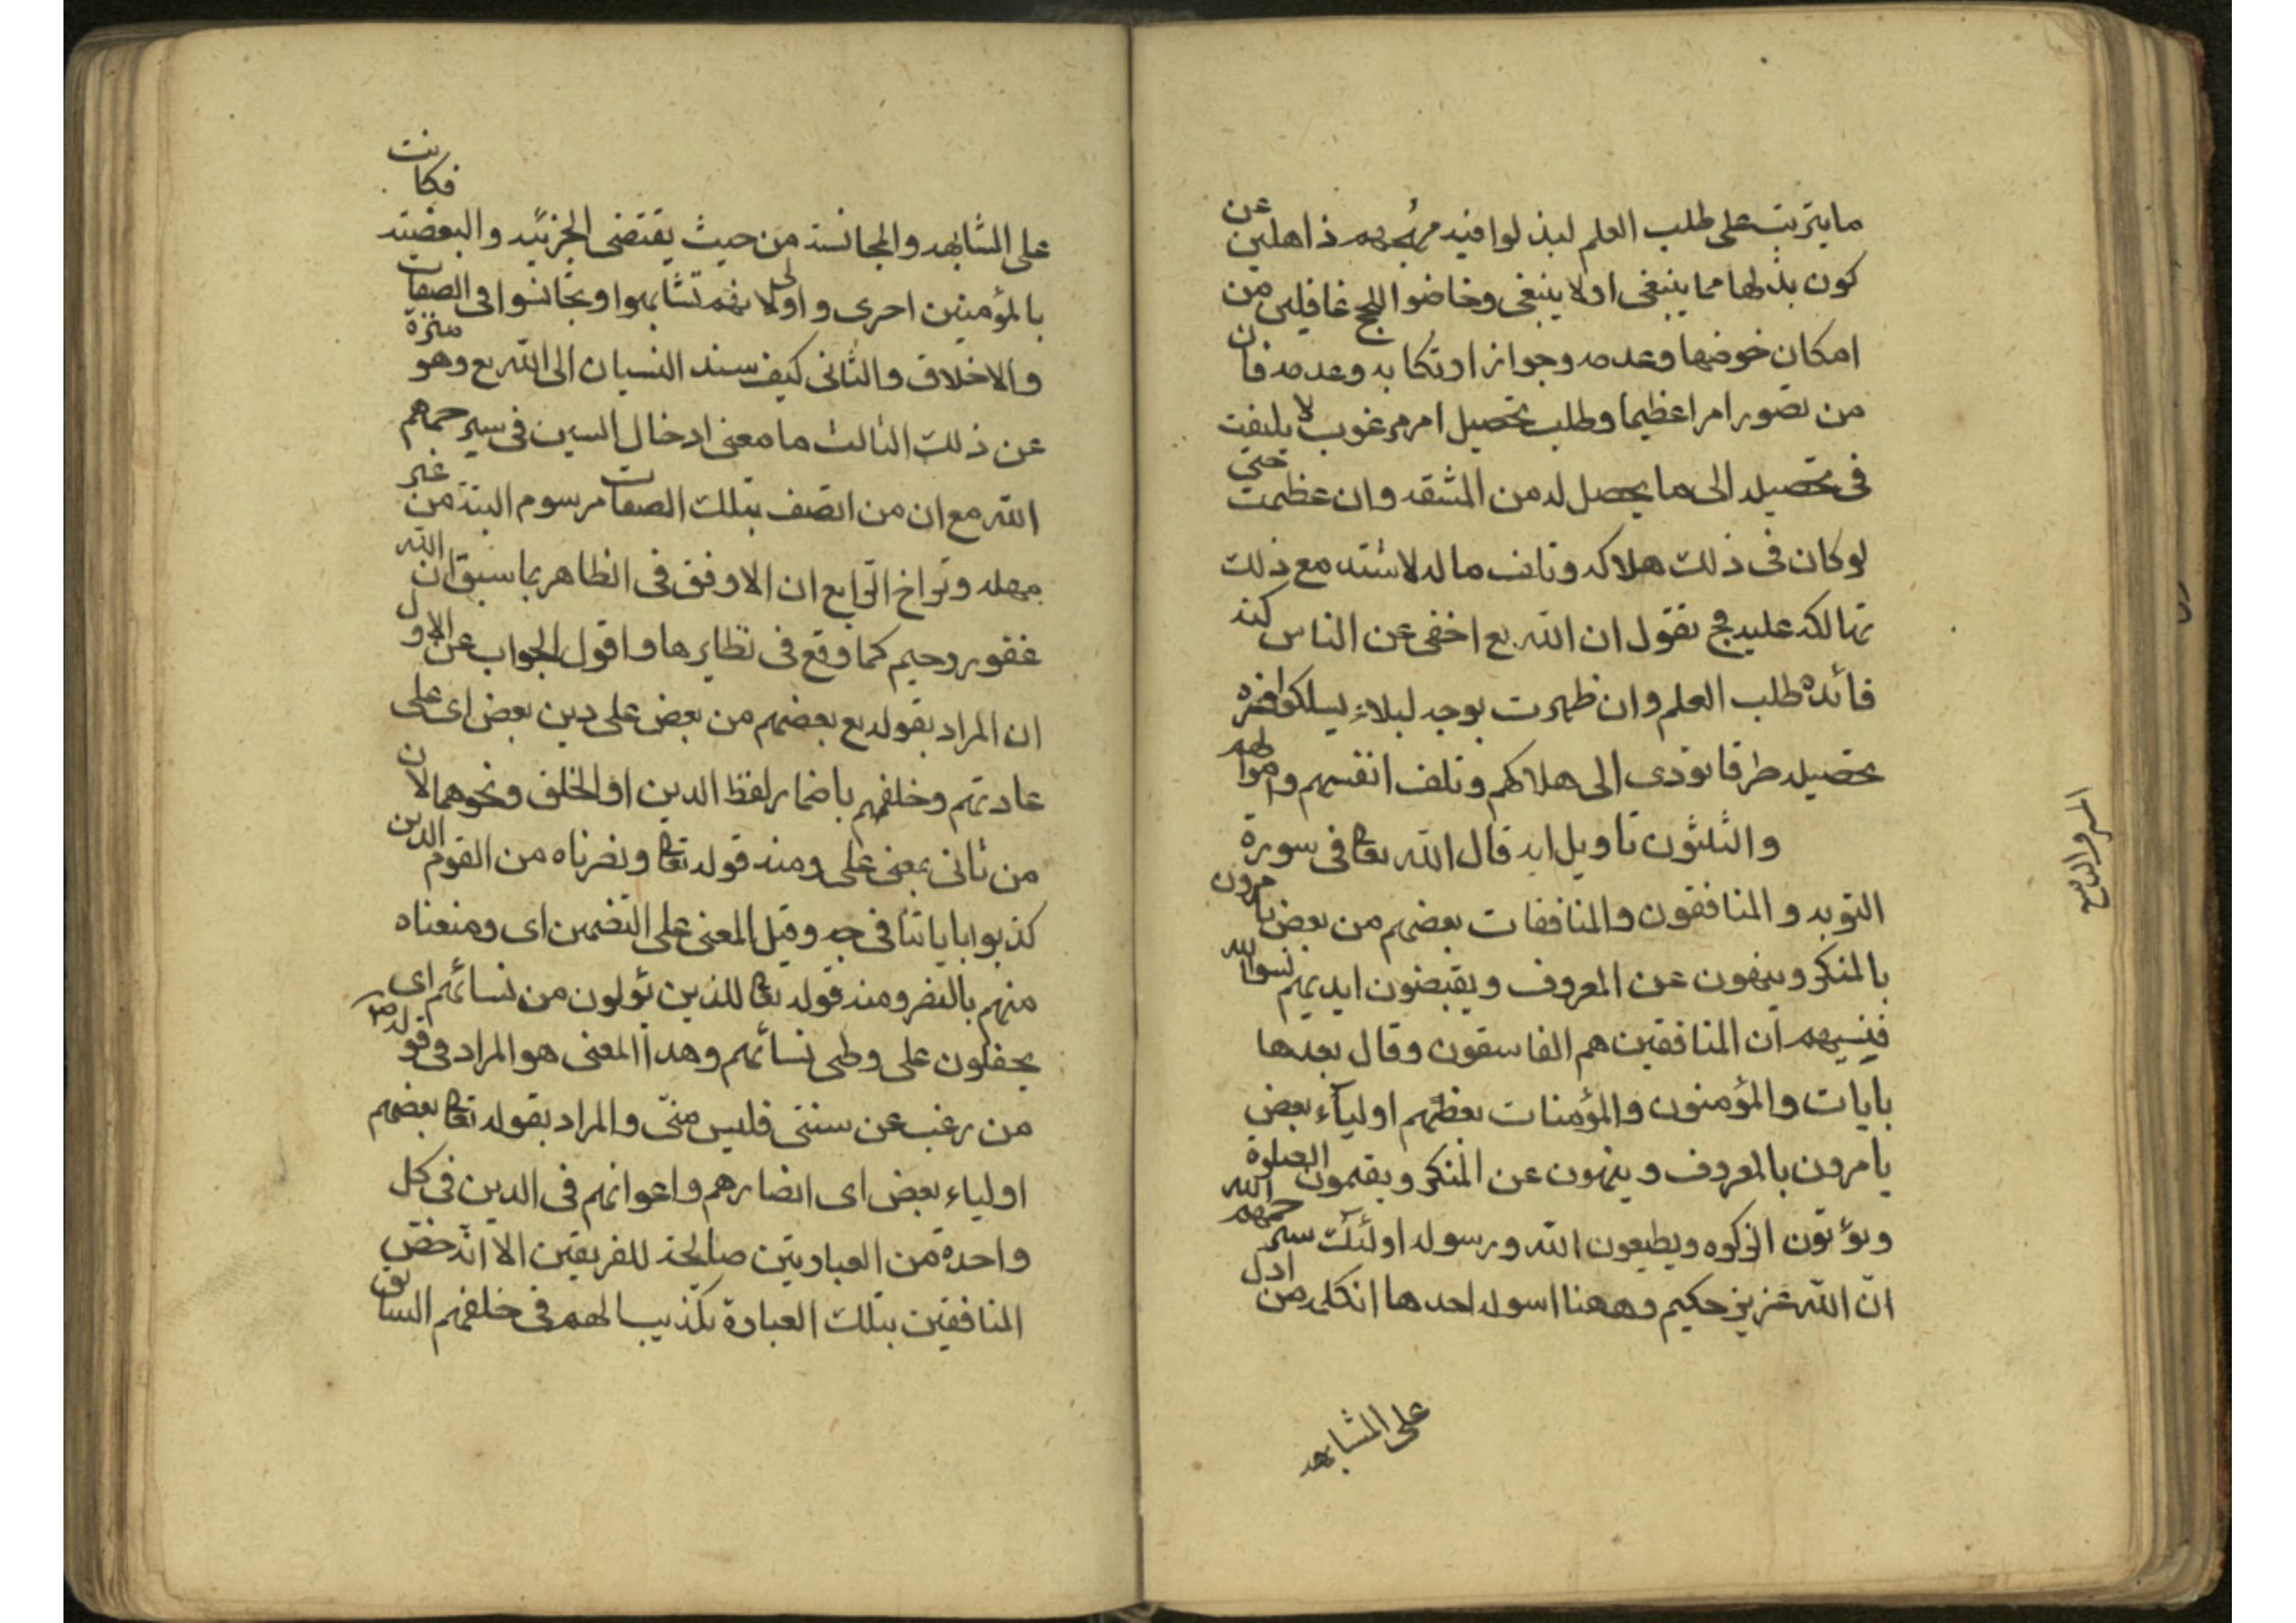 ما يترتب على طلب العلم لبذلوا فيه مهجهم ذاهلين عن
كون بذلها مما ينبغى اولا ينبغى وخاضوا اللجج غافلين من
امكان خوضها وعدمه وجواز ارتكابه وعدمه فان
من تصور امرا عظيما وطلب تحصيل امر مرغوب لا يلتفت
فى تحصيله الى ما يحصل له من المشقه وان عظمت حتى
لو كان فى ذلك هلاكه وتلف ماله لاشتد مع ذلك
تهالكه عليه فح نقول ان الله تع اخفى عن الناس كنه
فائدة طلب العلم وان ظهرت بوجه لبلاء يسلكوا فى
تحصيله طرقا تودى الى هلاكهم وتلف انفسهم واموالهم
والثلثون تاويل ايه قال الله تعا فى سورة
التوبه والمنافقون والمنافقات بعضهم من بعض يامرون
بالمنكر وينهون عن المعروف ويقبضون ايديهم نسوا الله
فنسيهم ان المنافقين هم الفاسقون وقال بعدها
بايات والمؤمنون والمؤمنات بعضهم اولياء بعض
يامرون بالمعروف وينهون عن المنكر ويقيمون الصلوة
ويؤتون الزكوه ويطيعون الله ورسوله اولئك سيرحمهم الله
ان الله عزيز حكيم وههنا اسوله احدها ان كلمه من ادل
على المشابهه
على المشابهه والمجانسة من حيث يقتضى الجزئيه والبعضيه فكانت
بالمؤمنين احرى واولى لانهم تشابهوا وتجانسوا فى الصفات
والاخلاق والثانى كيف سند النسيان الى الله تع وهو منزه
عن ذلك الثالث ما معنى ادخال السين فى سيرحمهم
الله مع ان من اتصف بتلك الصفات مرسوم البتة من غير
مهله وتراخ الرابع ان الاوفق فى الظاهر بما سبق ان الله
غفور رحيم كما وقع فى نظايرها واقول الجواب عن الاول
ان المراد بقوله تع بعضهم من بعض على دين بعض اى على
عادتهم وخلقهم باضمار لفظ الدين او الخلق ونحوهما لان
من تاتى بمعنى على ومنه قوله تعا ونصرناه من القوم الذين
كذبوا باياتنا فى وجه وقيل المعنى على التضمين اى ومنعناه
منهم بالنصر ومنه قوله تعا للذين يؤلون من نسائهم اى
يحفلون على وطى نسائهم وهذا المعنى هو المراد فى قوله ص
من رغب عن سنتى فليس منى والمراد بقوله تعا بعضهم
اولياء بعض اى انصارهم واعوانهم فى الدين فى كل
واحدة من العبارتين صالحة للفريقين الا انه خص
المنافقين بتلك العبارة تكذيبا لهم فى حلفهم السابق